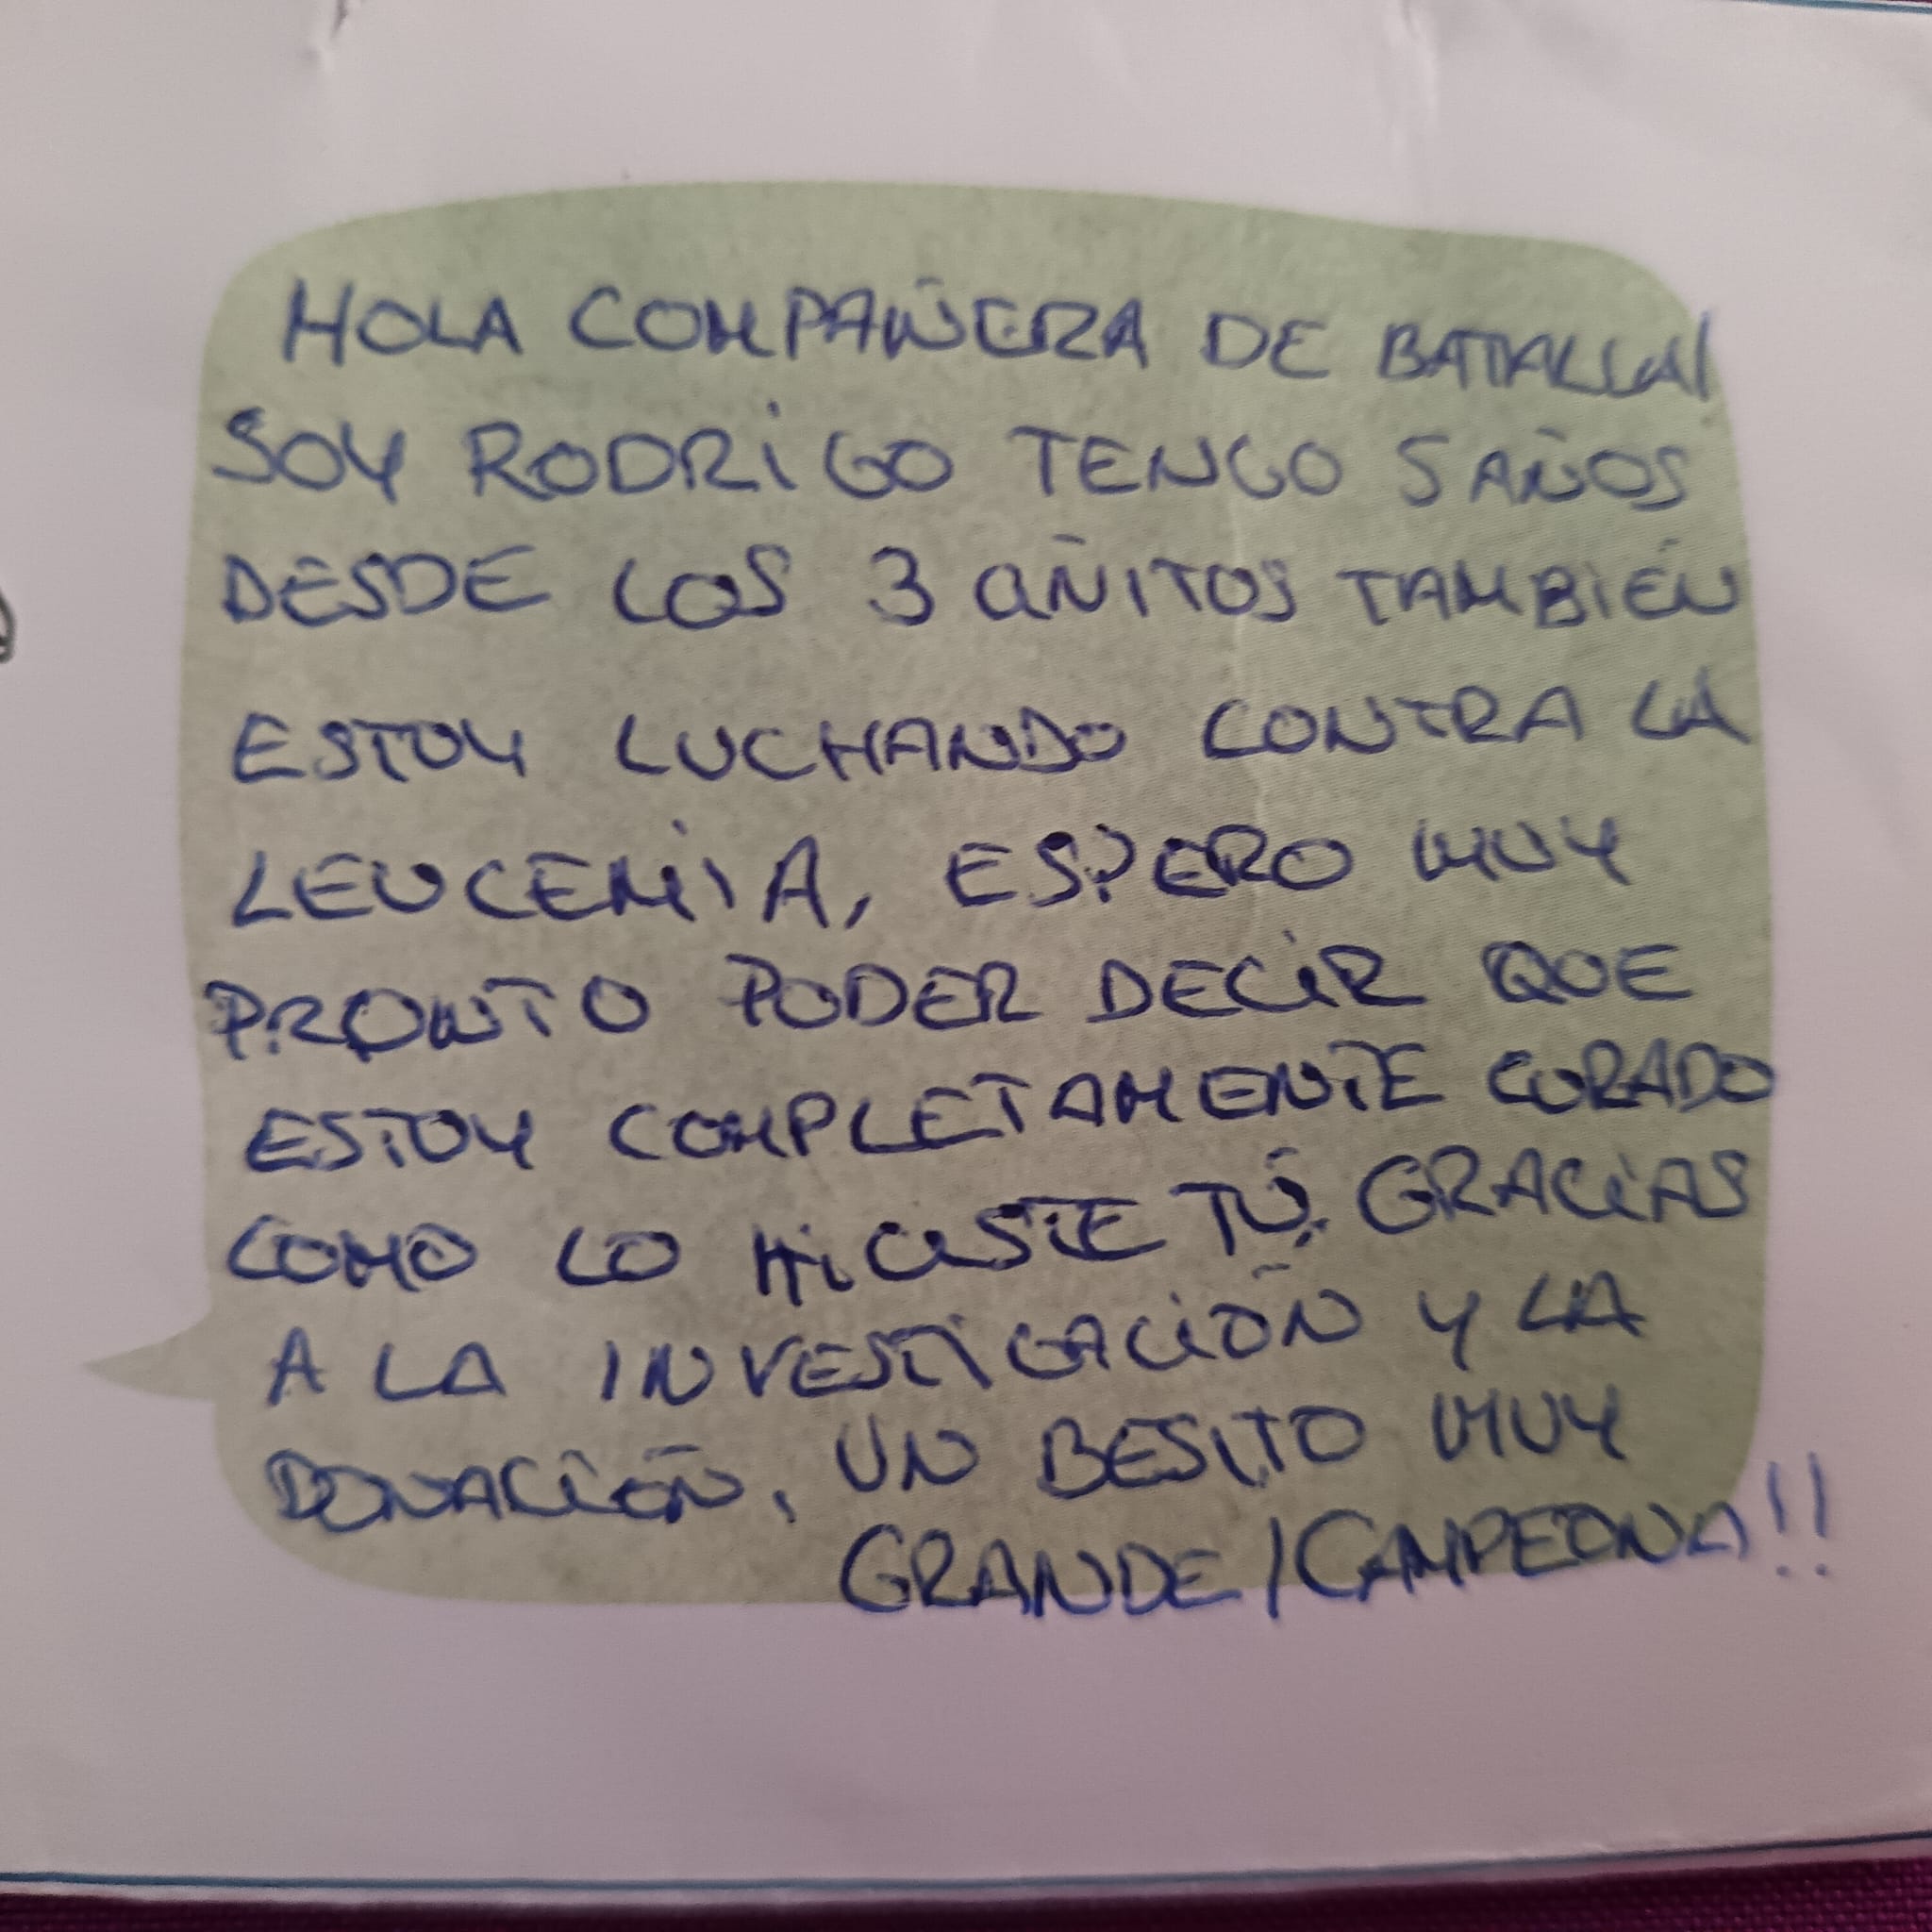 HOLA COMPAÑERA DE BATALLA!
SOY RODRIGO TENGO 5 AÑOS
DESDE LOS 3 AÑITOS TAMBIÉN
ESTOY LUCHANDO CONTRA LA
LEUCEMIA, ESPERO MUY
PRONTO PODER DECIR QUE
ESTOY COMPLETAMENTE CURADO
COMO LO HICISTE TÚ. GRACIAS
A LA INVESTIGACIÓN Y LA
DONACIÓN. UN BESITO MUY
GRANDE ¡CAMPEONA!!